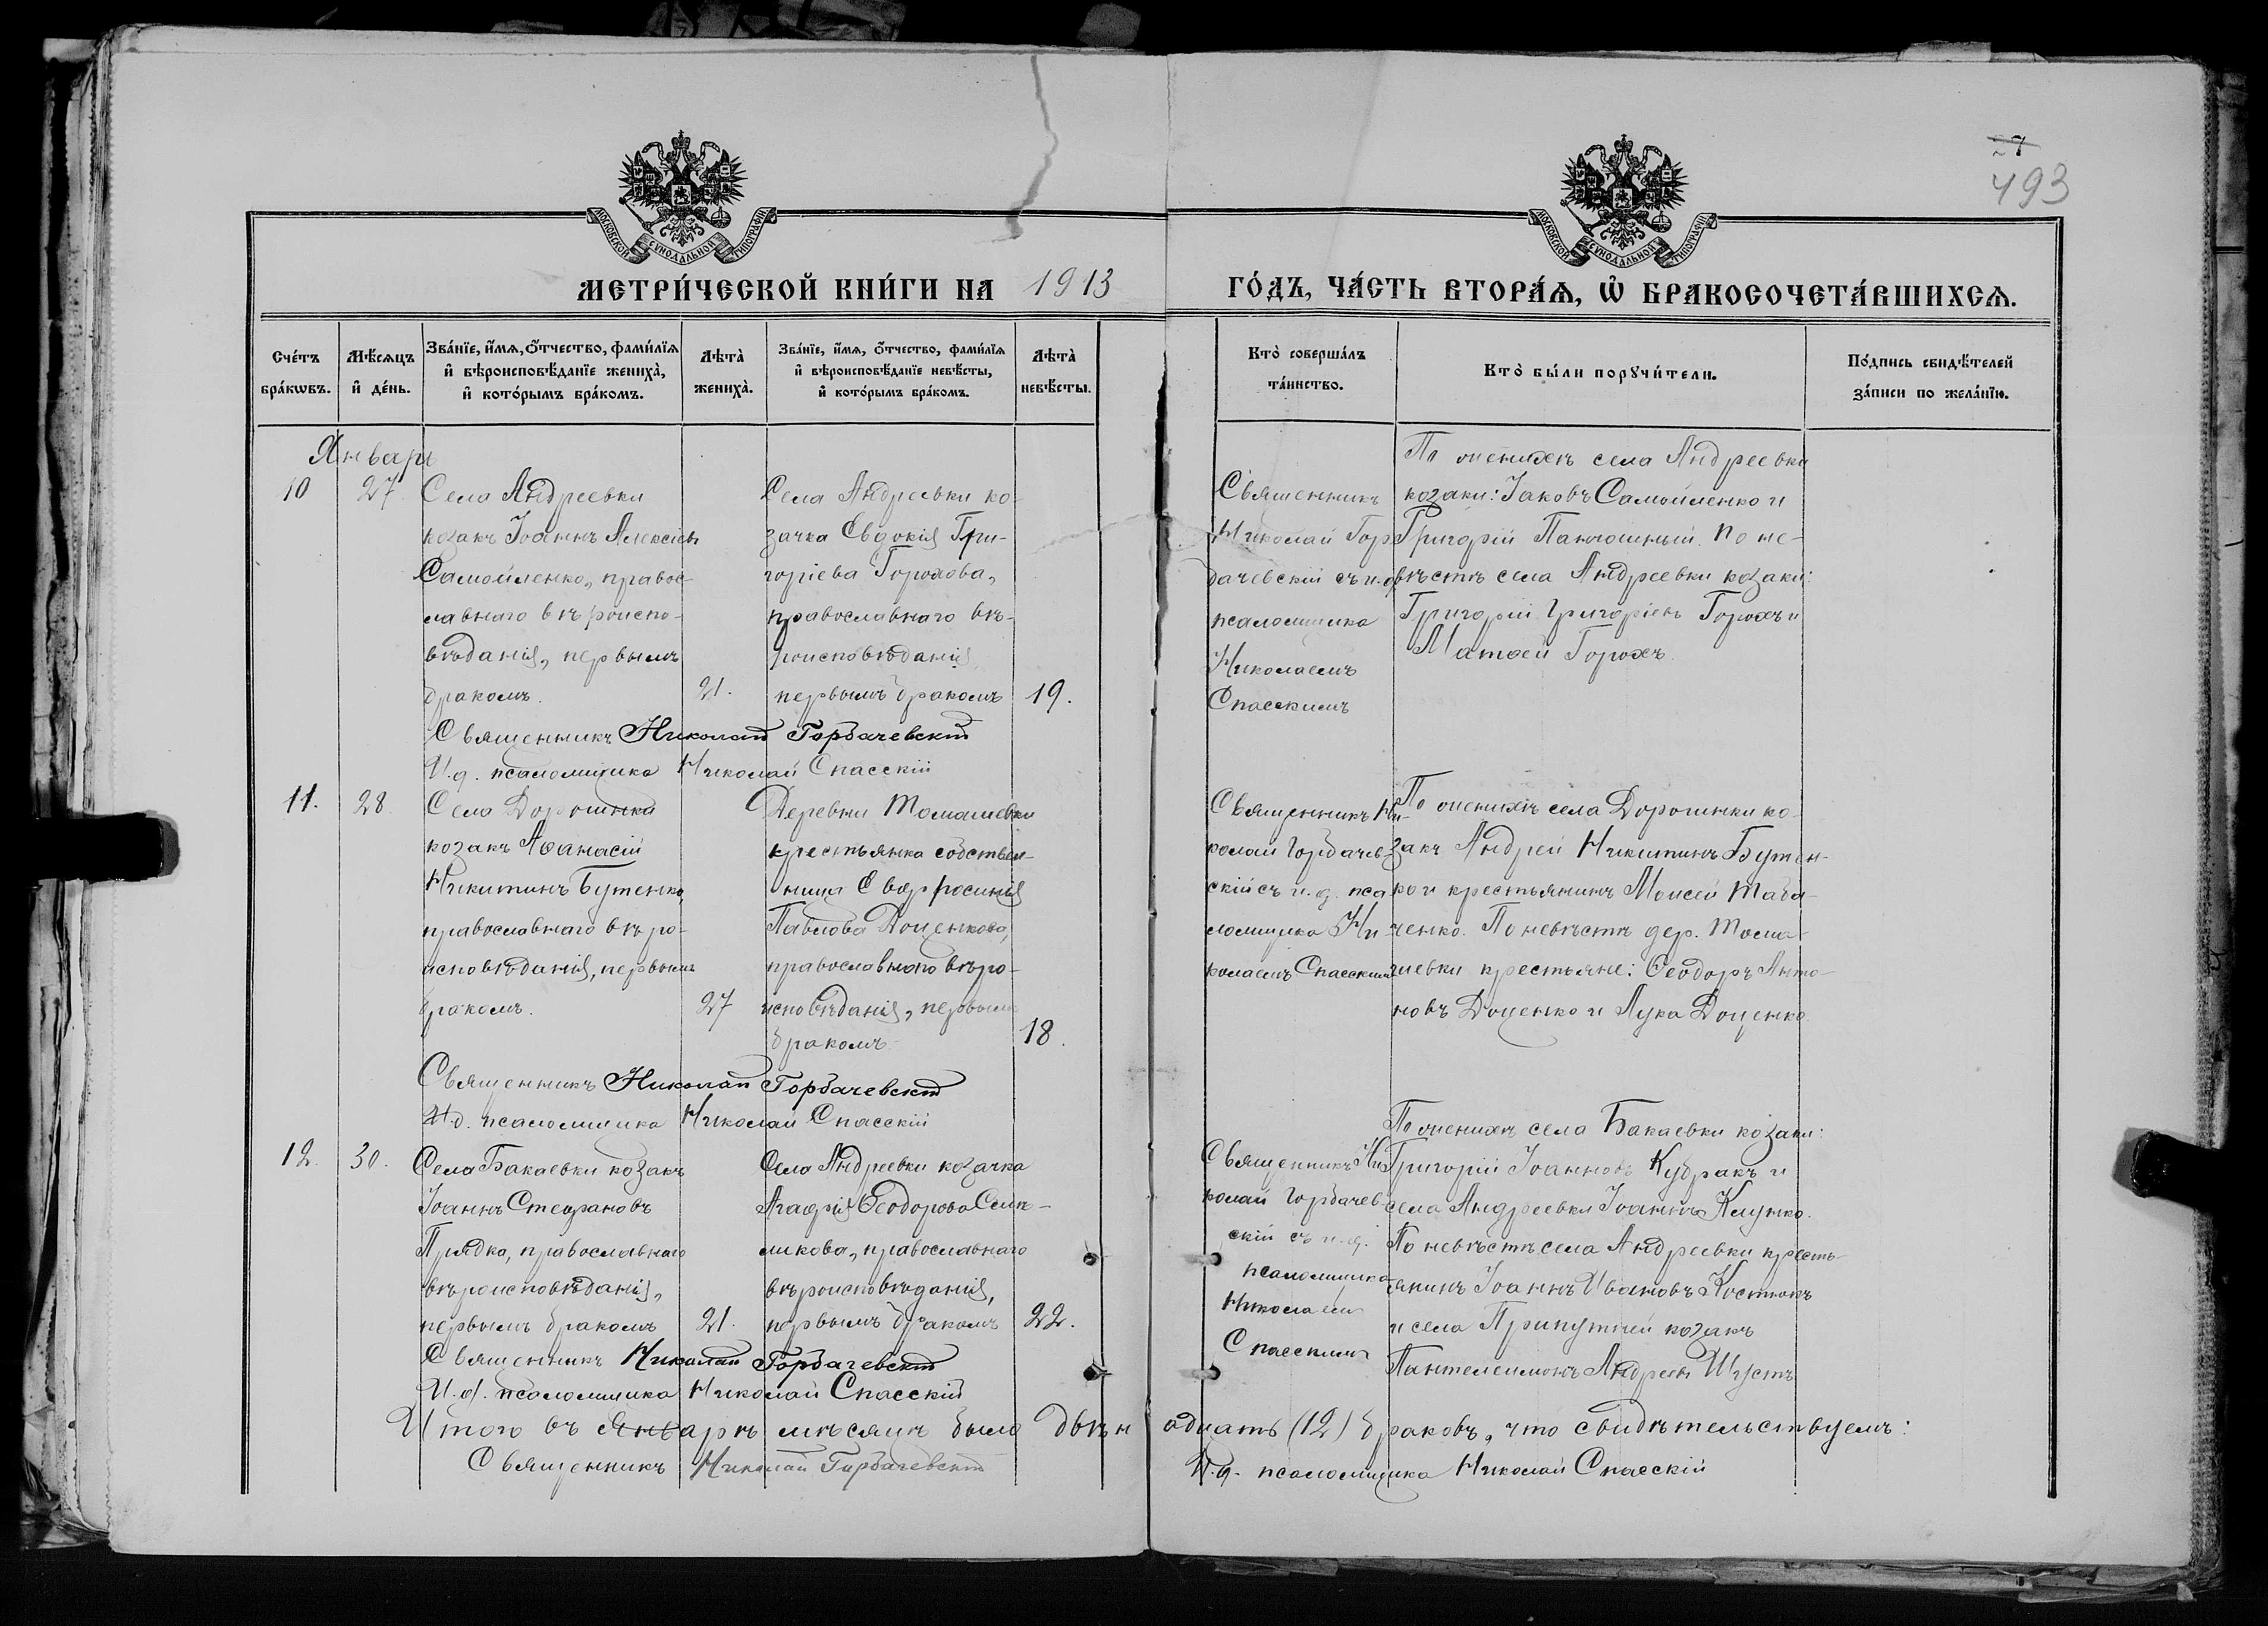 7
493
МОСКОВСКОЙ СѴНОДАЛЬНОЙ ТИПОГРАФІИ
МОСКОВСКОЙ СѴНОДАЛЬНОЙ ТИПОГРАФІИ
МЕТРИ́ЧЕСКОЙ КНИ́ГИ НА 1913 ГО́ДЪ, ЧА́СТЬ ВТОРА́Ѧ, Ѽ БРАКОСОЧЕТА́ВШИХСѦ.
Сче́тъ
бра́кѡвъ.
Мѣ́сѧцъ
и҆ де́нь.
Зва́нїе, и҆́мѧ, ѻ҆́тчество, фами́лїѧ
и҆ вѣроисповѣ́данїе жениха̀,
и҆ кото́рымъ бра́комъ.
Лѣта̀
жениха̀.
Зва́нїе, и҆́мѧ, ѻ҆́тчество, фами́лїѧ
и҆ вѣроисповѣ́данїе невѣ́сты,
и҆ кото́рымъ бра́комъ.
Лѣта̀
невѣ́сты.
Кто̀ соверша́лъ
та́инство.
Кто̀ бы́ли порꙋчи́тели.
По́дпись свидѣ́телей
за́писи по жела́нїю.
Январь
10
27
Села Андреевки
козакъ Іоаннъ Алексіевъ
Самойленко, правос-
лавнаго вѣроиспо-
вѣданія, первымъ
бракомъ.
21.
Села Андреевки ко-
зачка Евдокія Гри-
горіева Горохова,
православнаго вѣ-
роисповѣданія,
первымъ бракомъ
19.
Священникъ
Николай Гор
бачевскій съ и. д.
псаломщика
Николаемъ
Спасскимъ
По женихѣ села Андреевки
козаки: Іаковъ Самойленко и
Григорій Панюшный. По не-
вѣстѣ села Андреевки козаки:
Григорій Григоріевъ Горохъ и
Матѳей Горохъ.
Священникъ Николай Горбачевскій
И. д. псаломщика Николай Спасскій
11.
28
Села Дорошинки
козакъ Аѳанасій
Никитинъ Бутенко,
православнаго вѣро-
исповѣданія, первымъ
бракомъ.
27
Деревни Томашевки
крестьянка собствен-
ница Евфросинія
Павлова Доценкова,
православнаго вѣро-
исповѣданія, первымъ
бракомъ
18.
Священникъ Ни-
колай Горбачев-
скій съ и. д. пса
ломщика Ни-
колаемъ Спасскимъ
По женихѣ села Дорошинки ко-
закъ Андрей Никитинъ Бутен-
ко и крестьянинъ Моисей Таба-
ченко. По невѣстѣ дер. Тома-
шевки крестьяне: Ѳеодоръ Анто-
новъ Доценко и Лука Доценко.
Священникъ Николай Горбачевскій
И. д. псаломщика Николай Спасскій
12.
30.
Села Бакаевки козакъ
Іоаннъ Стефановъ
Прядко, православнаго
вѣроисповѣданія,
первымъ бракомъ
21.
Села Андреевки козачка
Агафія Ѳеодорова Сем-
ликова, православнаго
вѣроисповѣданія,
первымъ бракомъ
22.
Священникъ Ни
колай Горбачев-
скій съ и. д.
псаломщика
Николаемъ
Спасскимъ
По женихѣ села Бакаевки козаки:
Григорій Іоанновъ Кудракъ и
села Андреевки Іоаннъ Клунко.
По невѣстѣ села Андреевки кресть-
янинъ Іоаннъ Ивановъ Костюкъ
и села Припутней козакъ
Пантелеимонъ Андреевъ Шустъ
Священникъ Николай Горбачевскій
И. д. псаломщика Николай Спасскій
Итого въ Январѣ мѣсяцѣ было двѣнадцать (12) браковъ, что свидѣтельствуемъ:
Священникъ Николай Горбачевскій И. д. псаломщика Николай Спасскій